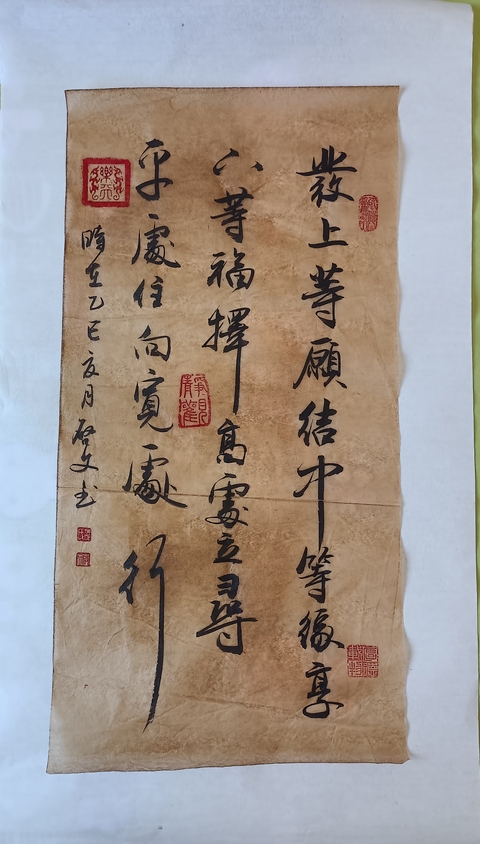 發上等願結中等緣享
下等福擇高處立尋
平處住向寬處行
時在乙巳月啟文书